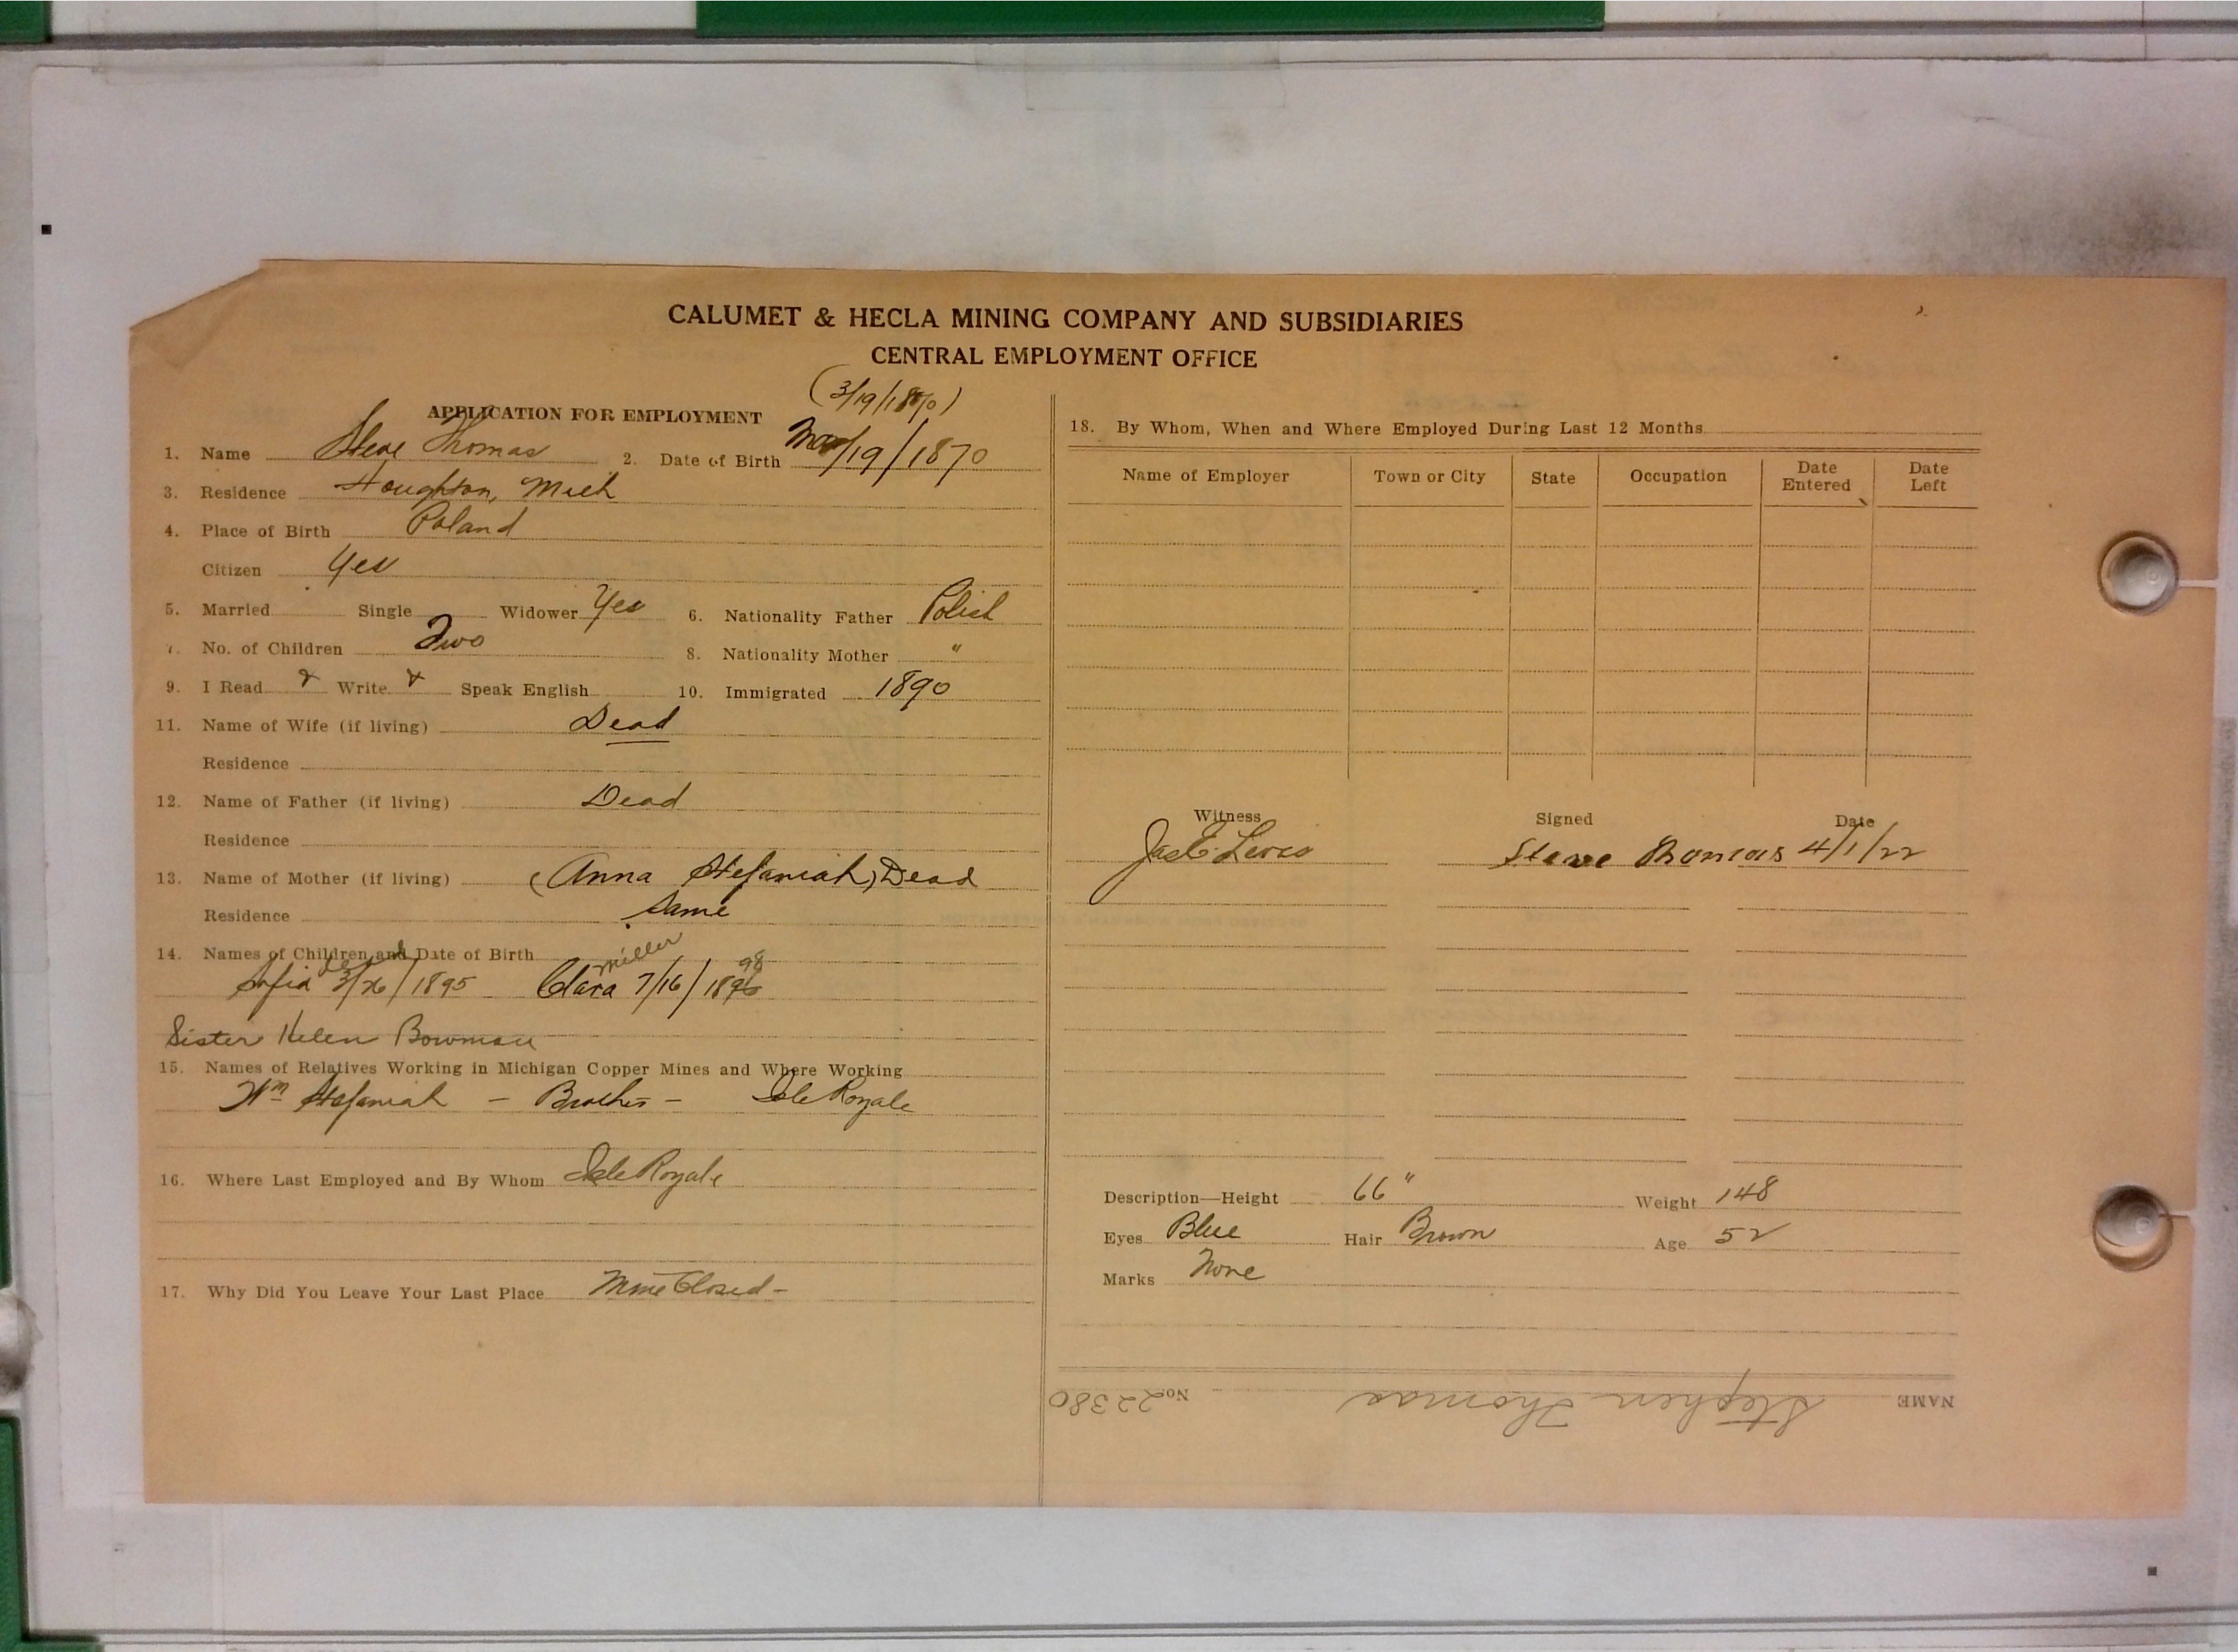 CALUMET & HECLA MINING COMPANY AND SUBSIDIARIES
CENTRAL EMPLOYMENT OFFICE
(3/19/1870)
APPLICATION FOR EMPLOYMENT
1. Name Steve Thomas 2. Date of Birth Mar/19/1870
3. Residence Houghton, Mich
4. Place of Birth Poland
Citizen Yes
5. Married Single Widower Yes 6. Nationality Father Polish
7. No. of Children Two 8. Nationality Mother "
9. I Read Write Speak English 10. Immigrated 1890
11. Name of Wife (if living) Dead
Residence
12. Name of Father (if living) Dead
Residence
13. Name of Mother (if living) (Anna Stefaniak) Dead
Residence Same
14. Names of Children and Date of Birth
Miller 98
Sofia 3/26/1895 Clara 7/16/1896
Sister Helen Bowman
15. Names of Relatives Working in Michigan Copper Mines and Where Working
Wm Stefaniak - Brother - Isle Royale
16. Where Last Employed and By Whom Isle Royale
17. Why Did You Leave Your Last Place Mine Closed -
18. By Whom, When and Where Employed During Last 12 Months
Name of Employer Town or City State Occupation Date Entered Date Left
Witness Signed Date
Steve Thomas 4/1/22
Description—Height 66" Weight 148
Eyes Blue Hair Brown Age 52
Marks None
NAME Stephen Thomas No. 22380